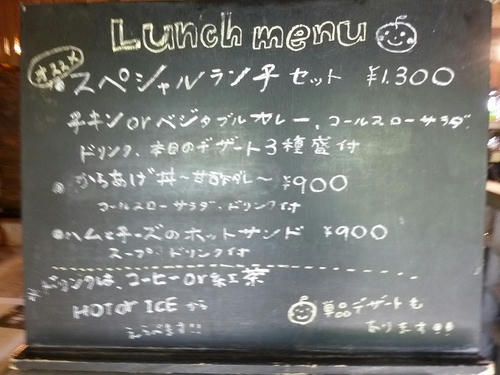 Lunch menu
オススメ
スペシャルランチセット ¥1.300
チキンorベジタブルカレー、コールスローサラダ
ドリンク、本日のデザート3種盛付
からあげ丼〜甘酢ダレ〜 ¥900
コールスローサラダ、ドリンク付
ハムとチーズのホットサンド ¥900
スープ、ドリンク付
※ドリンクは、コーヒーor紅茶
HOT or ICE から
えらべます!!
単品デザートも
あります!!